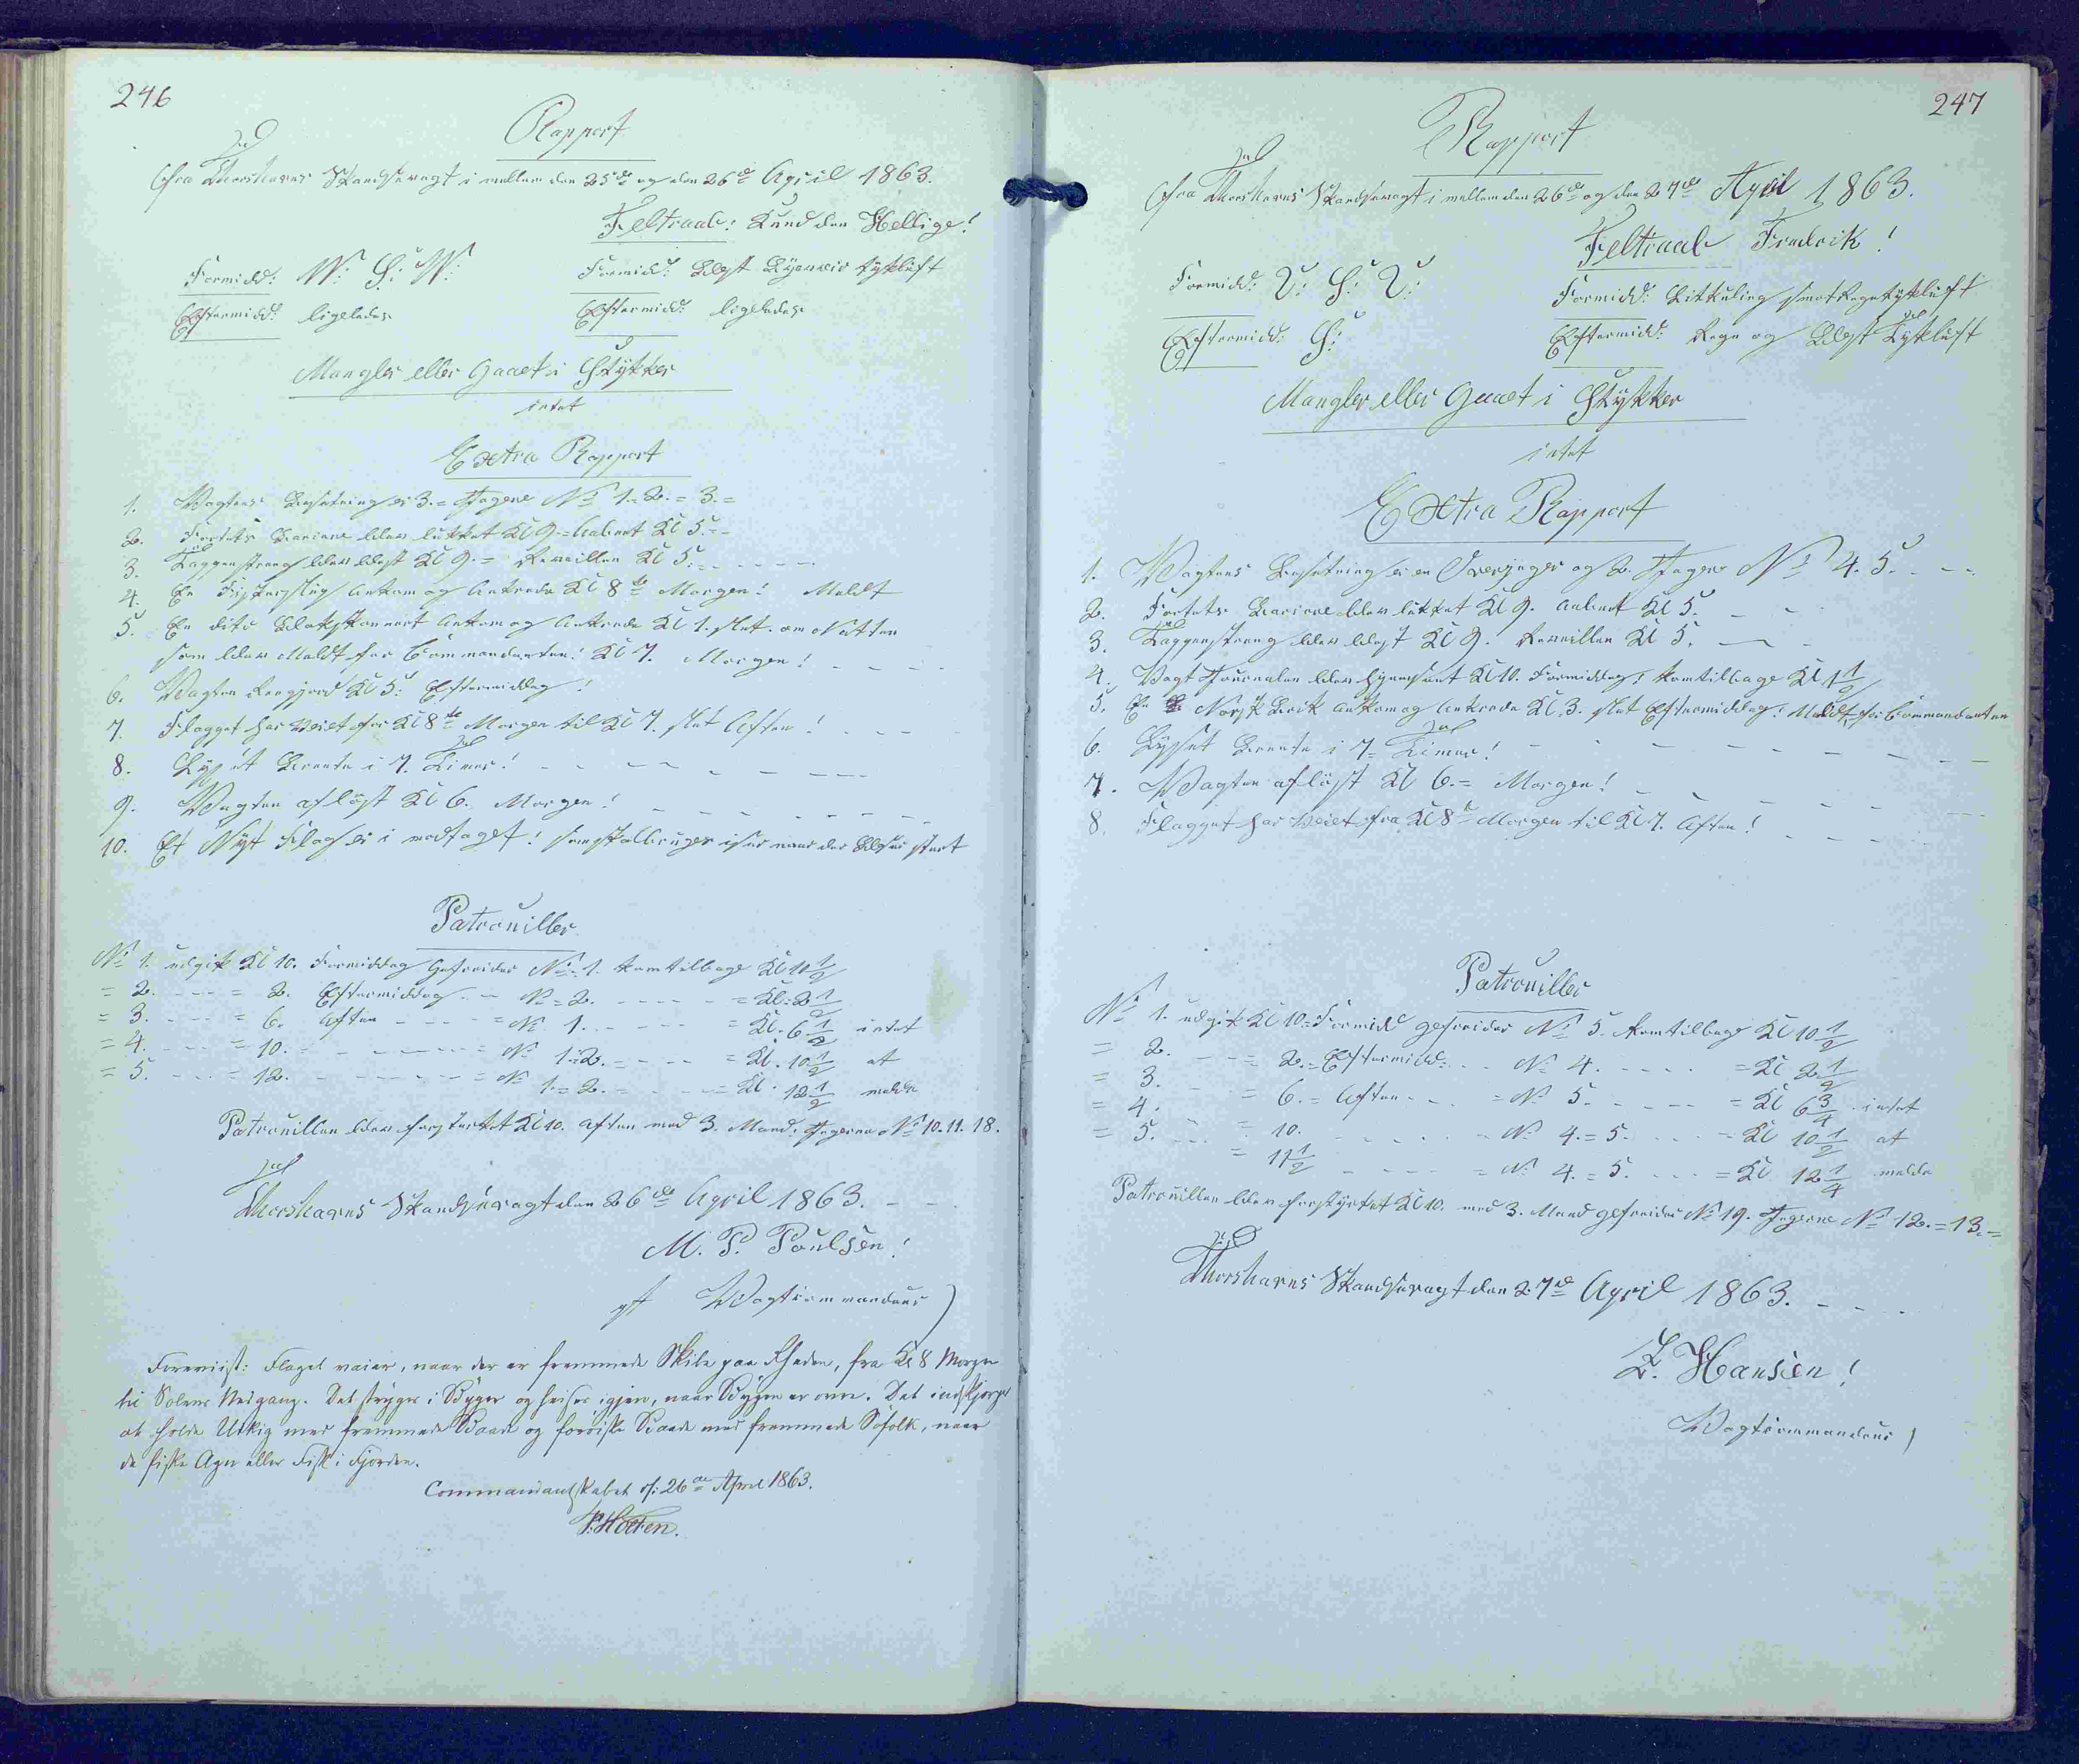 246
Rapport
fra Thorshavns Skandsevagt i mellem den 25de og den 26de April 1863.
Feltraab: Knud den Hellige!
Formidd: N: S: W:
Formidd: Blæst Tykluft
Eftermidd: ligeledes
Eftermidd: ligeledes
Mangler eller Gaaet i Stykker
intet
Extra Rapport
1. Vagtens Besætning er 3.= Jægere No 1.= 2.= 3.=
2. Fortets Barriere blev lukket Kl 9.= aabnet Kl 5.=
3. Tappenstreng blev blæst Kl 9.= Reveillen Kl 5.
4. En Fiskerslup ankom og ankrede Kl 8te Morgen! Meldt
5. En dito ankom og ankrede Kl 1. slet om Natten
som blev Meldt for Commandanten: Kl 7. Morgen!
6. Vagten Rengjord Kl 5: Eftermiddag!
7. Flagget har Veiet fra Kl 8te Morgen til Kl 7. slet Aften!
8. Lyset Brente i 7. Timer!
9. Vagten afløst Kl 6. Morgen!
10. Et Nyt Flag er i modtaget! som skal bruges naar der Blæser stærkt
Patrouiller
No 1. udgik Kl 10. Formiddag Gefreider No 1. kom tilbage Kl 10 1/2
= 2. = 2. Eftermiddag. No = 2. = Kl. 2 1/2
= 3. = 6. Aften = No 1. = Kl. 6 1/2 intet
= 4. = 10. = No 1.=2. = Kl. 10 1/2 at
= 5. = 12. = No 1.=2. = Kl. 12 1/2 melde
Patrouillen blev forstærket Kl 10. Aften med 3. Mand: Jægerne No 10. 11. 18.
Thorshavns Skandsevagt den 26de April 1863.
M. P. Poulsen!
Vagtcommandeur
Foreviist: Flaget vaier, naar der er fremmede Skibe paa Rheden, fra Kl 8 Morgen
til Solens Nedgang. Det stryges i Byger og heises igjen, naar Bygen er over. Det indskjærpes
at holde Udkig med fremmede Baade og færøiske Baade med fremmede Søfolk, naar
de fiske Agn eller Fisk i Fjorden.
Commandantskabet d: 26de April 1863.
247
Rapport
fra Thorshavns Skandsevagt i mellem den 26de og den 27de April 1863.
Feltraab Fredrik!
Formidd: V: S: V:
Formidd: Tykluft
Eftermidd: S:
Eftermidd: Regn og Blæst Tykluft
Mangler eller Gaaet i Stykker
intet
Extra Rapport
1. Vagtens Besætning er en Overjæger og 2. Jægere No 4. 5.
2. Fortets Barriere blev lukket Kl 9. aabnet Kl 5.
3. Tappenstreng blev blæst Kl 9. Reveillen Kl 5.
4. Vagt Journalen blev hjemsent Kl 10. Formiddag, kom tilbage Kl 1 1/2
5. En Norsk Brik ankom og ankrede Kl 3. slet Eftermiddag! Meldt for Commandanten
6. Lyset Brente i 7= Timer!
7. Vagten afløst Kl 6.= Morgen!
8. Flagget har Veiet fra Kl 8te Morgen til Kl 7. Aften!
Patrouiller
No 1. udgik Kl 10= Formidd gefreider No 5. kom tilbage Kl 10 1/2
= 2. = 2.= Eftermidd: No 4. = Kl 2 1/2
= 3. = 6.= Aften = No 5. = Kl 6 3/4 intet
= 4. = 10. = No 4.=5. = Kl 10 1/2 at
= 5. = 11 1/2 = No 4.=5. = Kl 12 1/4 melde
Patrouillen blev forstyrket Kl 10. med 3. Mand gefreider No 19. Jægerne No 12.=13.=
Thorshavns Skandsevagt den 27de April 1863.
Z. Hansen!
Vagtcommandeur